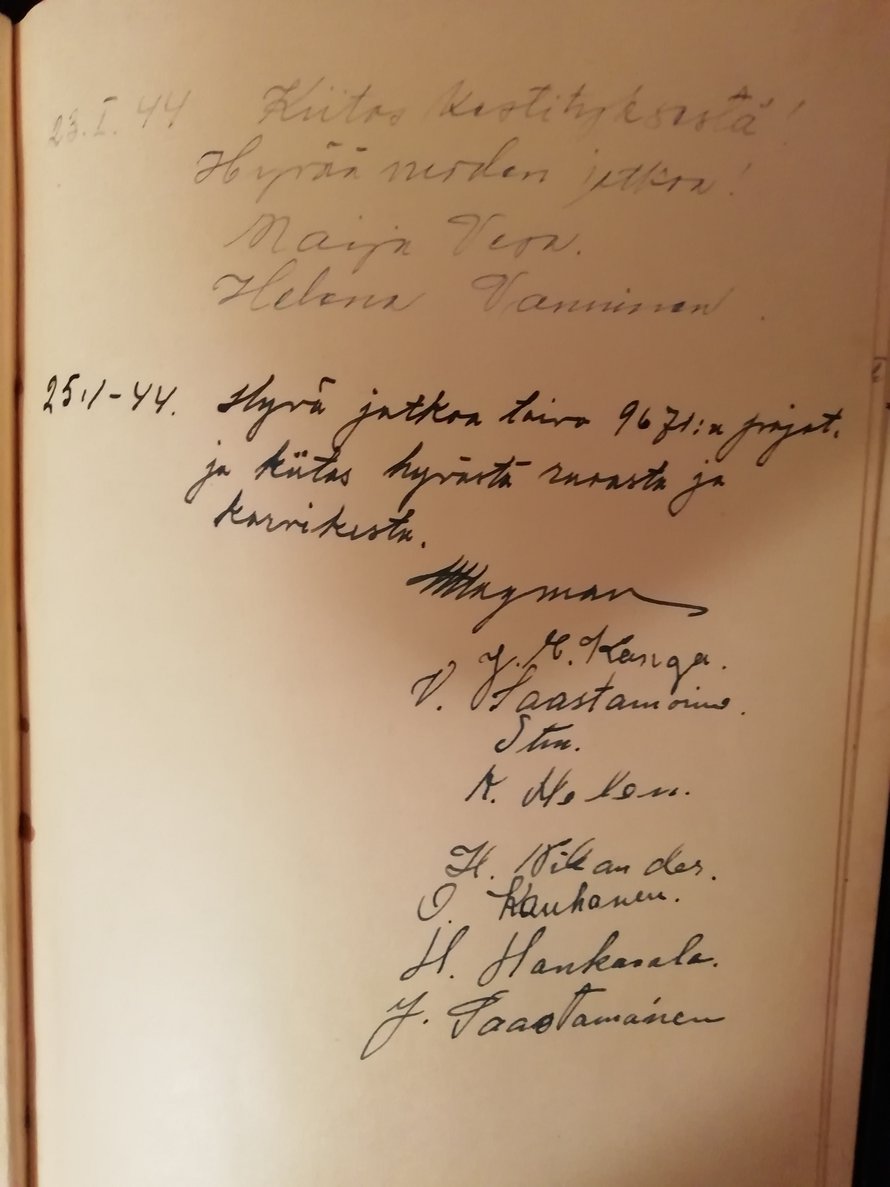 23.I.44 Kiitos kestityksestä!
Hyvää vuoden jatkoa!
Maija Vesa.
Helena Vanninen.
25.1-44. Hyvä jatkoa toivo 9671:n pojat.
ja kiitos hyvästä ruuasta ja
korvikesta.
Hagman
J. M. Kanga.
V. Saastamoine.
A. Melen.
H. Wikander.
O. Kauhanen.
H. Hankasalo.
J. Saastamoinen